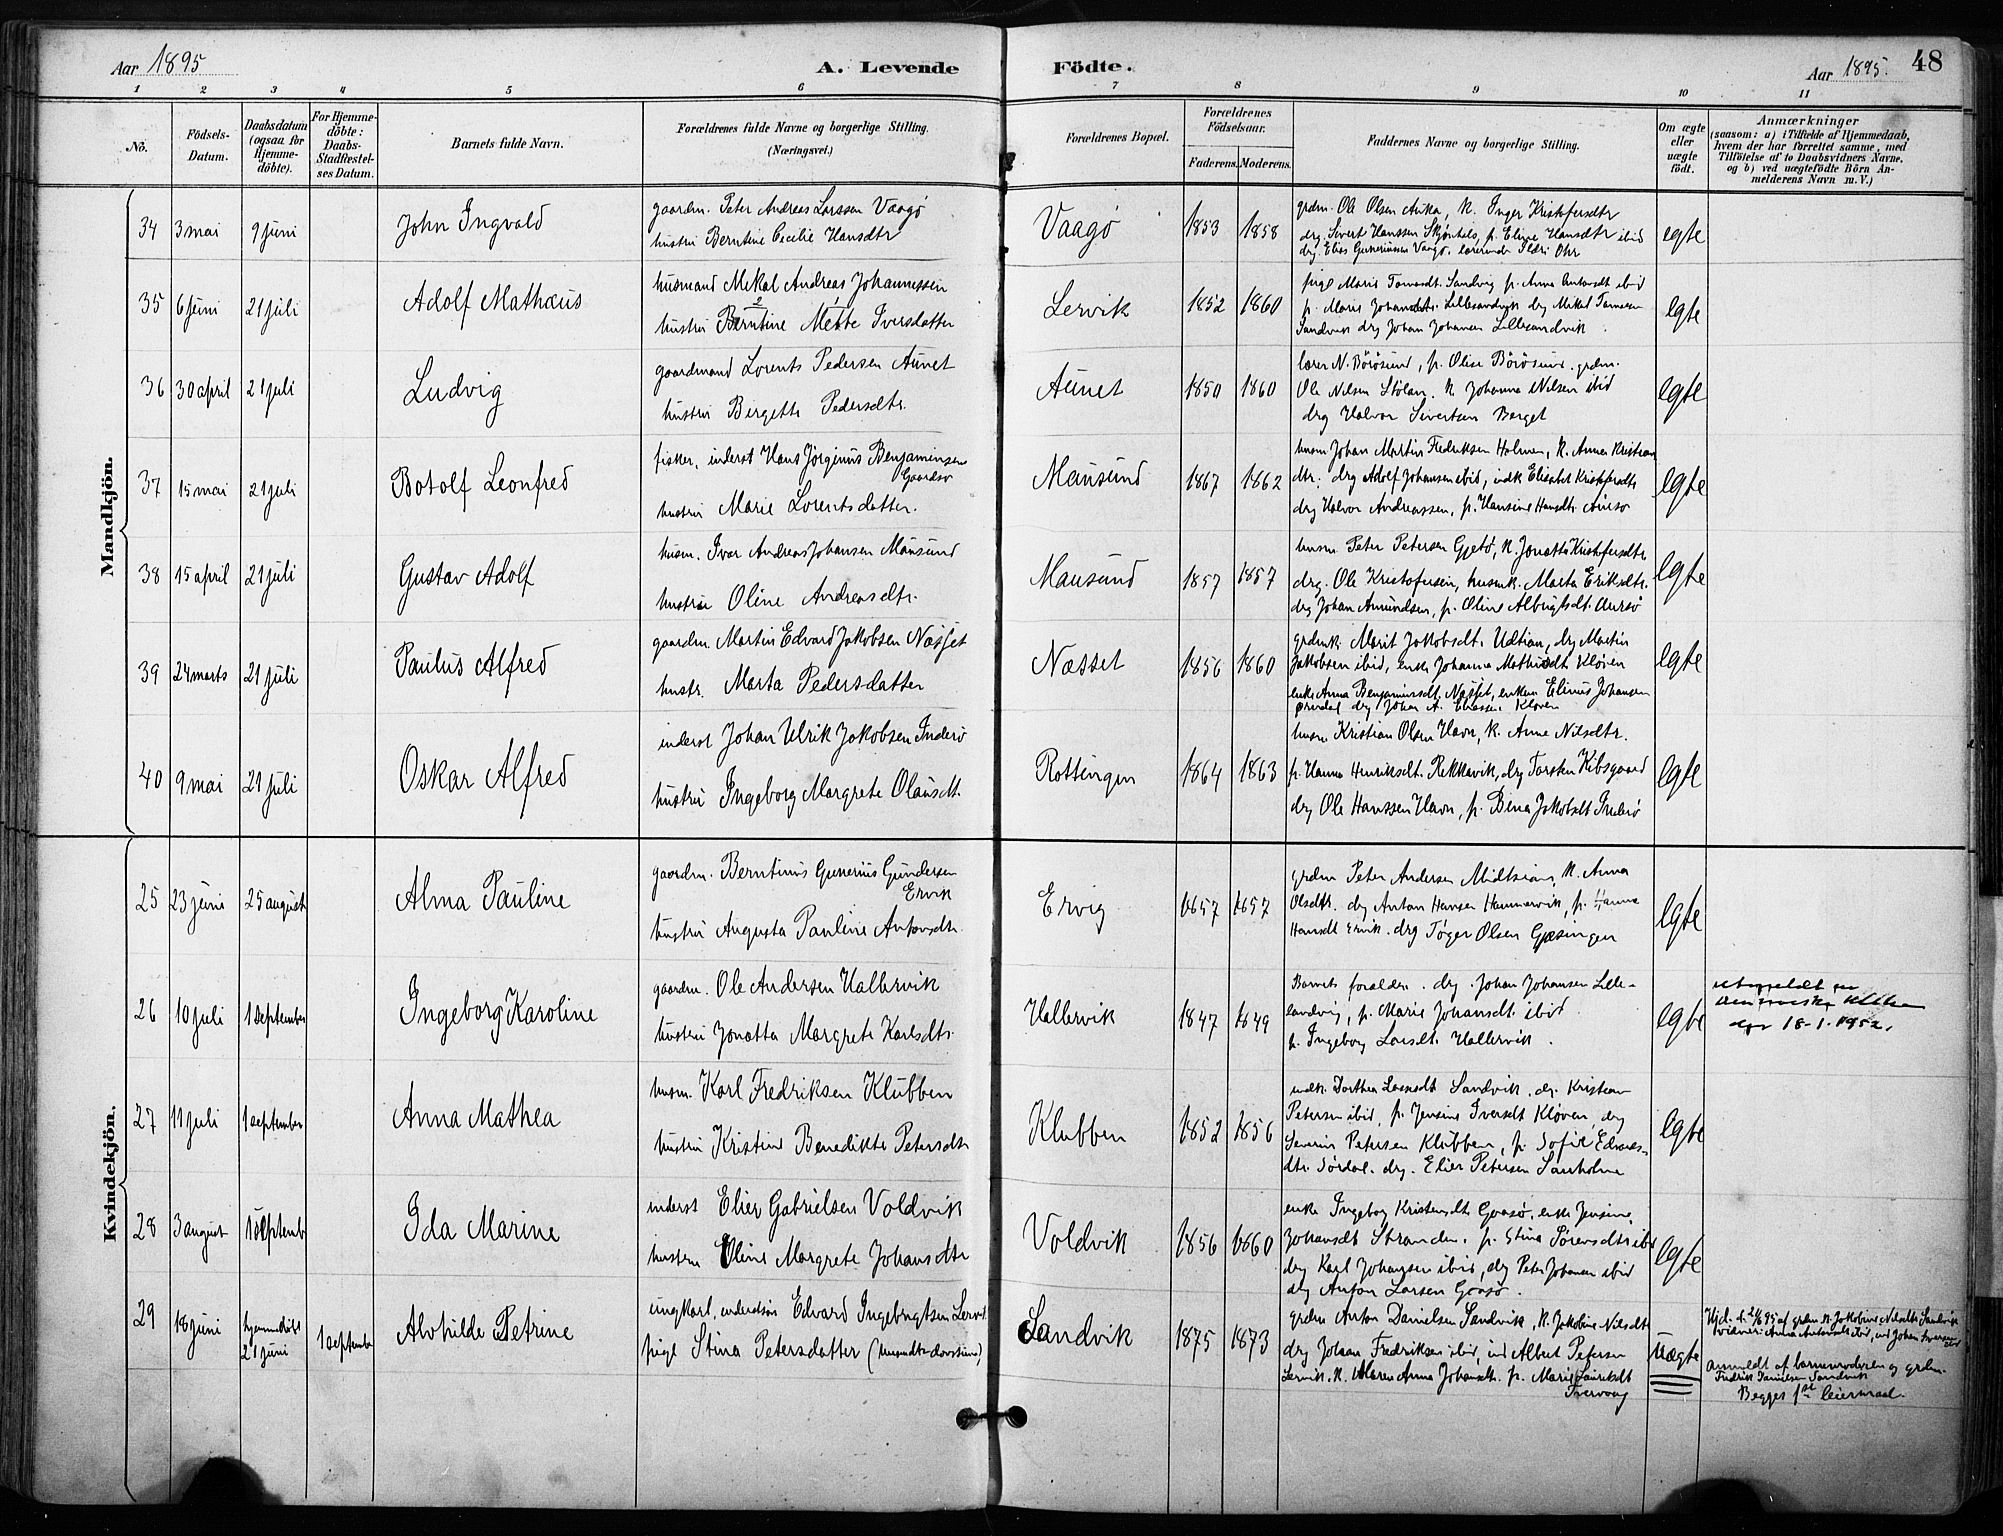 Aar 1895 A. Levende Födte. Aar 1895. 48
1 2 3 4 5 6 7 8 9 10 11
No.
Födsels-Datum.
Daabsdatum (ogsaa for Hjemme-döbte).
For Hjemme-döbte: Daabs-Stadfæstel-ses Datum.
Barnets fulde Navn.
Forældrenes fulde Navne og borgerlige Stilling.
(Næringsvei.)
Forældrenes Bopæl.
Forældrenes Födselsaar.
Faderens. Moderens.
Faddernes Navne og borgerlige Stilling.
Om ægte eller uægte födt.
Anmærkninger
(saasom: a) i Tilfælde af Hjemmedaab,
hvem der har forrettet samme, med
Tilföielse af to Daabsvidners Navne,
og b) ved uægtefödte Börn An-
melderens Navn m.V.)
Mandkjön.
34 3 mai 9 juni John Ingvald
gaardm. Peter Andreas Larssen Vaagø
hustru Berntine Cecilie Hansdtr
Vaagø 1853 1858
grdm. Ole Olsen Auka, k. Inger Kristofersdtr
drg. Sivert Hanssen, p. Eline Hansdtr ibid
drg. Elias Guneriussen Vaagø
egte
35 6 juni 21 juli Adolf Mathæus
husmand Mekal Andreas Johannessen
2 1
hustru Berntine Mette Iversdatter
Lervik 1852 1860
pige Marie Sandvig p. Anna Antonsdt ibid
p. Marie Johansdtr. Lillesandvik drg Mekal
Sandvik drg Johan Johansen Lillesandvik
egte
36 30 april 21 juli Ludvig
gaardmand Lorents Pedersen Aunet
hustru Birgette Pedersdtr.
Aunet 1850 1860
lærer N. Börösund, p. Olise Börösund. grdm.
Ole Nilsen Stölan. k. Johanna Nilsen ibid
drg Halvor Sivertsen Berget
egte
37 15 mai 21 juli Botolf Leonfred
fisker, inderst Hans Jörginus Benjaminsen
hustru Marie Lorentsdatter.
Mausund 1867 1862
husm Johan Martin Fredriksen Holmen, k. Anna Kristian
dtr. drg Adolf Johansen ibid, indk Elisabet Kristofersdtr
drg Halvor Andreassen, p. Hansine Hansdtr Aursø
egte
38 15 april 21 juli Gustav Adolf
husm. Ivar Andreas Johansen Mausund
hustru Oline Andreasdtr.
Mausund 1857 1857
husm Peter Petersen Gjetø, k. Jonatta Kristofersdtr
drg. Ole Kristofersen, husmk. Marta Eriksdtr.
drg Johan Amundsen, p. Oline Albrigtsdt. Aursø
egte
39 24 marts 21 juli Paulus Alfred
gaardm Martin Edvard Jakobsen Næsset
hustr. Marta Pedersdatter
Næsset 1856 1860
grdmk. Marit Jakobsdt. Udtian, drg Martin
Jakobsen ibid, enke Johanna Kløven
enke Anna Benjaminsdt. Næsset, enkem Elinus Johansen
drg Johan A. Eliassen Kløven
egte
40 9 mai 21 juli Oskar Alfred
inderst Johan Ulrik Jakobsen Inderø
hustru Ingeborg Margrete Olausdt.
Rottingen 1864 1863
husm Kristian Olsen Havn, k. Anne Nilsdtr.
p. Hanna Henriksdt. Rekkavik, drg Torsten Kibsgaard
drg Ole Hanssen Havn, p. Bina Jakobsdt Inderø
egte
Kvindekjön.
25 23 juni 25 august Alma Pauline
gaardm. Berntinus Gunerius Gundersen
Ervik
hustru Augusta Pauline Antonsdtr.
Ervig 1857 1857
grdm Peter Andersen Midtsian, k. Anna
Olsdtr. drg Anton Hansen Hammervik, p. Hanna
Hansdt Ervik. drg Töger Olsen Gjæsingen
egte
26 10 juli 1 september Ingeborg Karoline
gaardm. Ole Andersen Hallervik
hustru Jonatta Margrete Karlsdtr.
Hallervik 1847 1849
Barnets foreldre. drg. Johan Johansen Lille-
sandvig, p. Marie Johansdt. ibid
p. Ingeborg Larsdt. Hallervik.
egte
18-1-1952.
27 11 juli 1 september Anna Mathea
husm. Karl Fredriksen Klubben
hustru Kristine Benedikte Petersdtr
Klubben 1852 1856
indk. Dorthea Larsdt Sandvik, drg. Kristian
Petersen ibid, p. Jensine Iversdt Kløven, drg
Severin Petersen Klubben, p. Sofie Edvards-
dtr. Sördal. drg. Elier Petersen Sauholme
egte
28 3 august 1 septemb Ida Marine
inderst Elier Gabrielsen Voldvik
hustru Oline Margrete Johansdtr
Voldvik 1856 1860
enke Ingeborg Kristensdt. Gaasø, enke Jensine
Johansdt Stranden. p. Stina Sörensdtr ibd
drg Karl Johansen ibid, drg Peter Johansen ibid
drg Anton Larsen Gaasø.
egte
29 18 juni hjemmedöbt 21 juni 1 septembe Alvhilde Petrine
ungkarl, Edvard Ingebrigtsen Lervik
pige Stina Petersdatter
Sandvik 1875 1873
grdm Anton Danielsen Sandvik, k. Jakobine Nilsdt
drg Johan Fredriksen ibid, ind Albert Petersen
Lervik. k. Maren Anna Johansdt. p. Marie
uægte
Hjd. d. 21/6 95 af grdm. k. Jakobine Nilsdtr Sandvik
vidner: Anna Antonsdt ibid, ind Johan Iversen
anmeldt af barnemoderen og grdm.
Fredrik Danielsen Sandvik
Begges 1st leiermaal.